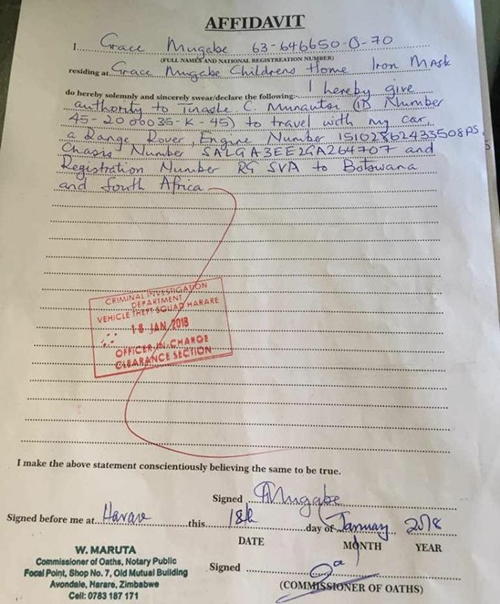 AFFIDAVIT
I Grace Mugabe 63-646650-Q-70
(FULL NAMES AND NATIONAL REGISTREATION NUMBER)
residing at Grace Mugabe Childrens Home Iron Mask
do hereby solemnly and sincerely swear/declare the following: I hereby give
authority to Tinashe C. Munautsi (ID Number
45-2000035-K-45) to travel with my car
a Range Rover, Engine Number 151028G2433508PS
Chasis Number SALGA3EE2GA264707 and
Registration Number RG SVA to Botswana
and South Africa
CRIMINAL INVESTIGATION
DEPARTMENT
VEHICLE THEFT SQUAD HARARE
18 JAN 2018
OFFICER-IN-CHARGE
CLEARANCE SECTION
I make the above statement conscientiously believing the same to be true.
Signed GMugabe
Signed before me at Harare this 18th day of January 2018
DATE MONTH YEAR
W. MARUTA
Commissioner of Oaths, Notary Public
Focal Point, Shop No. 7, Old Mutual Building
Avondale, Harare, Zimbabwe
Cell: 0783 187 171
Signed
(COMMISSIONER OF OATHS)